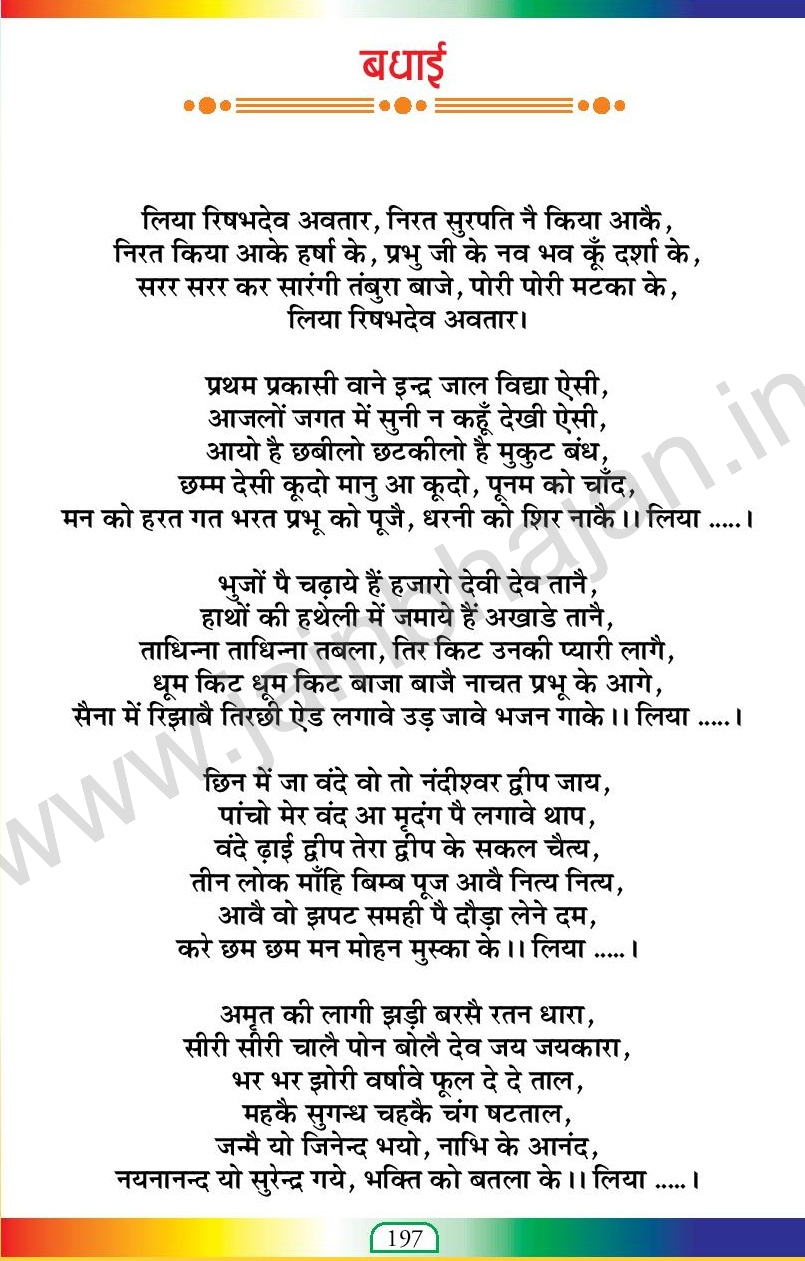 बधाई
लिया रिषभदेव अवतार, निरत सुरपति नै किया आकै,
निरत किया आके हर्षा के, प्रभु जी के नव भव कूँ दर्शा के,
सरर सरर कर सारंगी तंबुरा बाजे, पोरी पोरी मटका के,
लिया रिषभदेव अवतार।
प्रथम प्रकासी वाने इन्द्र जाल विद्या ऐसी,
आजलों जगत में सुनी न कहूँ देखी ऐसी,
आयो है छबीलो छटकीलो है मुकुट बंध,
छम्म देसी कूदो मानु आ कूदो, पूनम को चाँद,
मन को हरत गत भरत प्रभू को पूजै, धरनी को शिर नाकै।। लिया .....।
भुजों पै चढ़ाये हैं हजारो देवी देव तानै,
हाथों की हथेली में जमाये हैं अखाडे तानै,
ताधिन्ना ताधिन्ना तबला, तिर किट उनकी प्यारी लागै,
धूम किट धूम किट बाजा बाजै नाचत प्रभू के आगे,
सैना में रिझाबै तिरछी ऐड लगावे उड़ जावे भजन गाके।। लिया .....।
छिन में जा वंदे वो तो नंदीश्वर द्वीप जाय,
पांचो मेर वंद आ मृदंग पै लगावे थाप,
वंदे ढ़ाई द्वीप तेरा द्वीप के सकल चैत्य,
तीन लोक माँहि बिम्ब पूज आवै नित्य नित्य,
आवै वो झपट समही पै दौड़ा लेने दम,
करे छम छम मन मोहन मुस्का के।। लिया .....।
अमृत की लागी झड़ी बरसै रतन धारा,
सीरी सीरी चालै पोन बोलै देव जय जयकारा,
भर भर झोरी वर्षावे फूल दे दे ताल,
महकै सुगन्ध चहकै चंग षटताल,
जन्मै यो जिनेन्द भयो, नाभि के आनंद,
नयनानन्द यो सुरेन्द्र गये, भक्ति को बतला के।। लिया .....।
197
www.jainbhajan.in